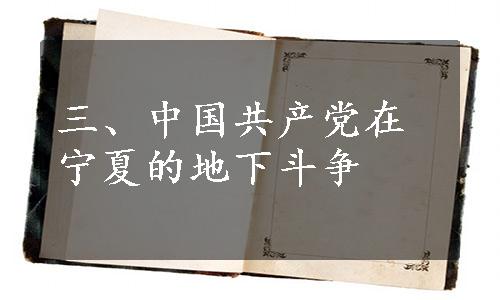 三、中国共产党在
宁夏的地下斗争